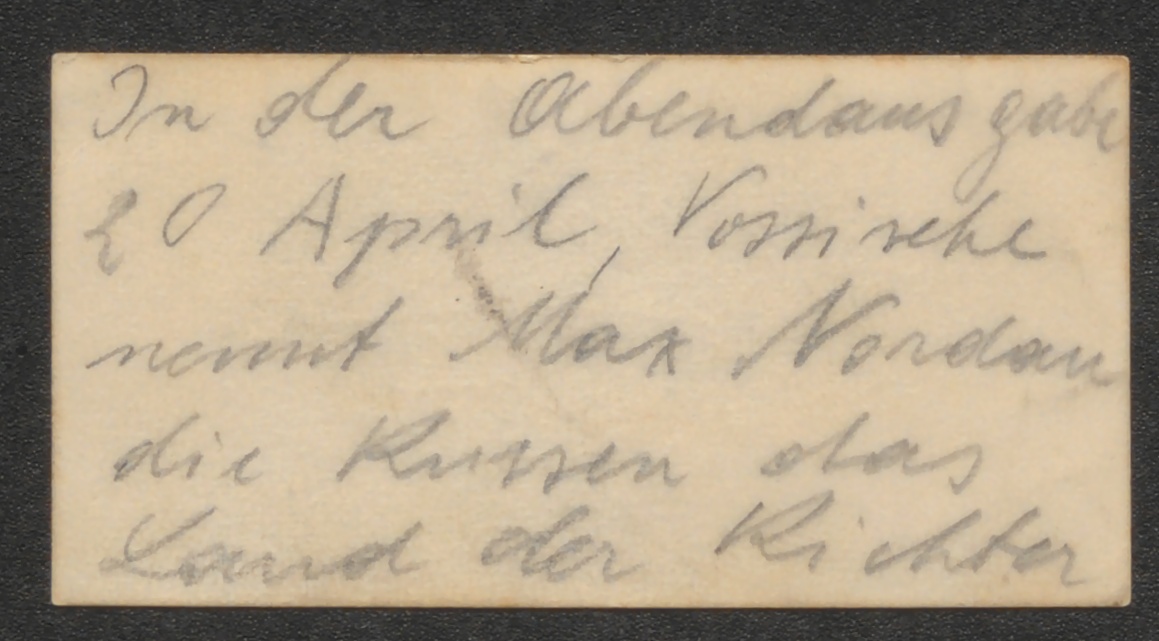 In der Abendausgabe
20 April, Vossische
nennt Max Nordau
die Russen das
Land der Richter